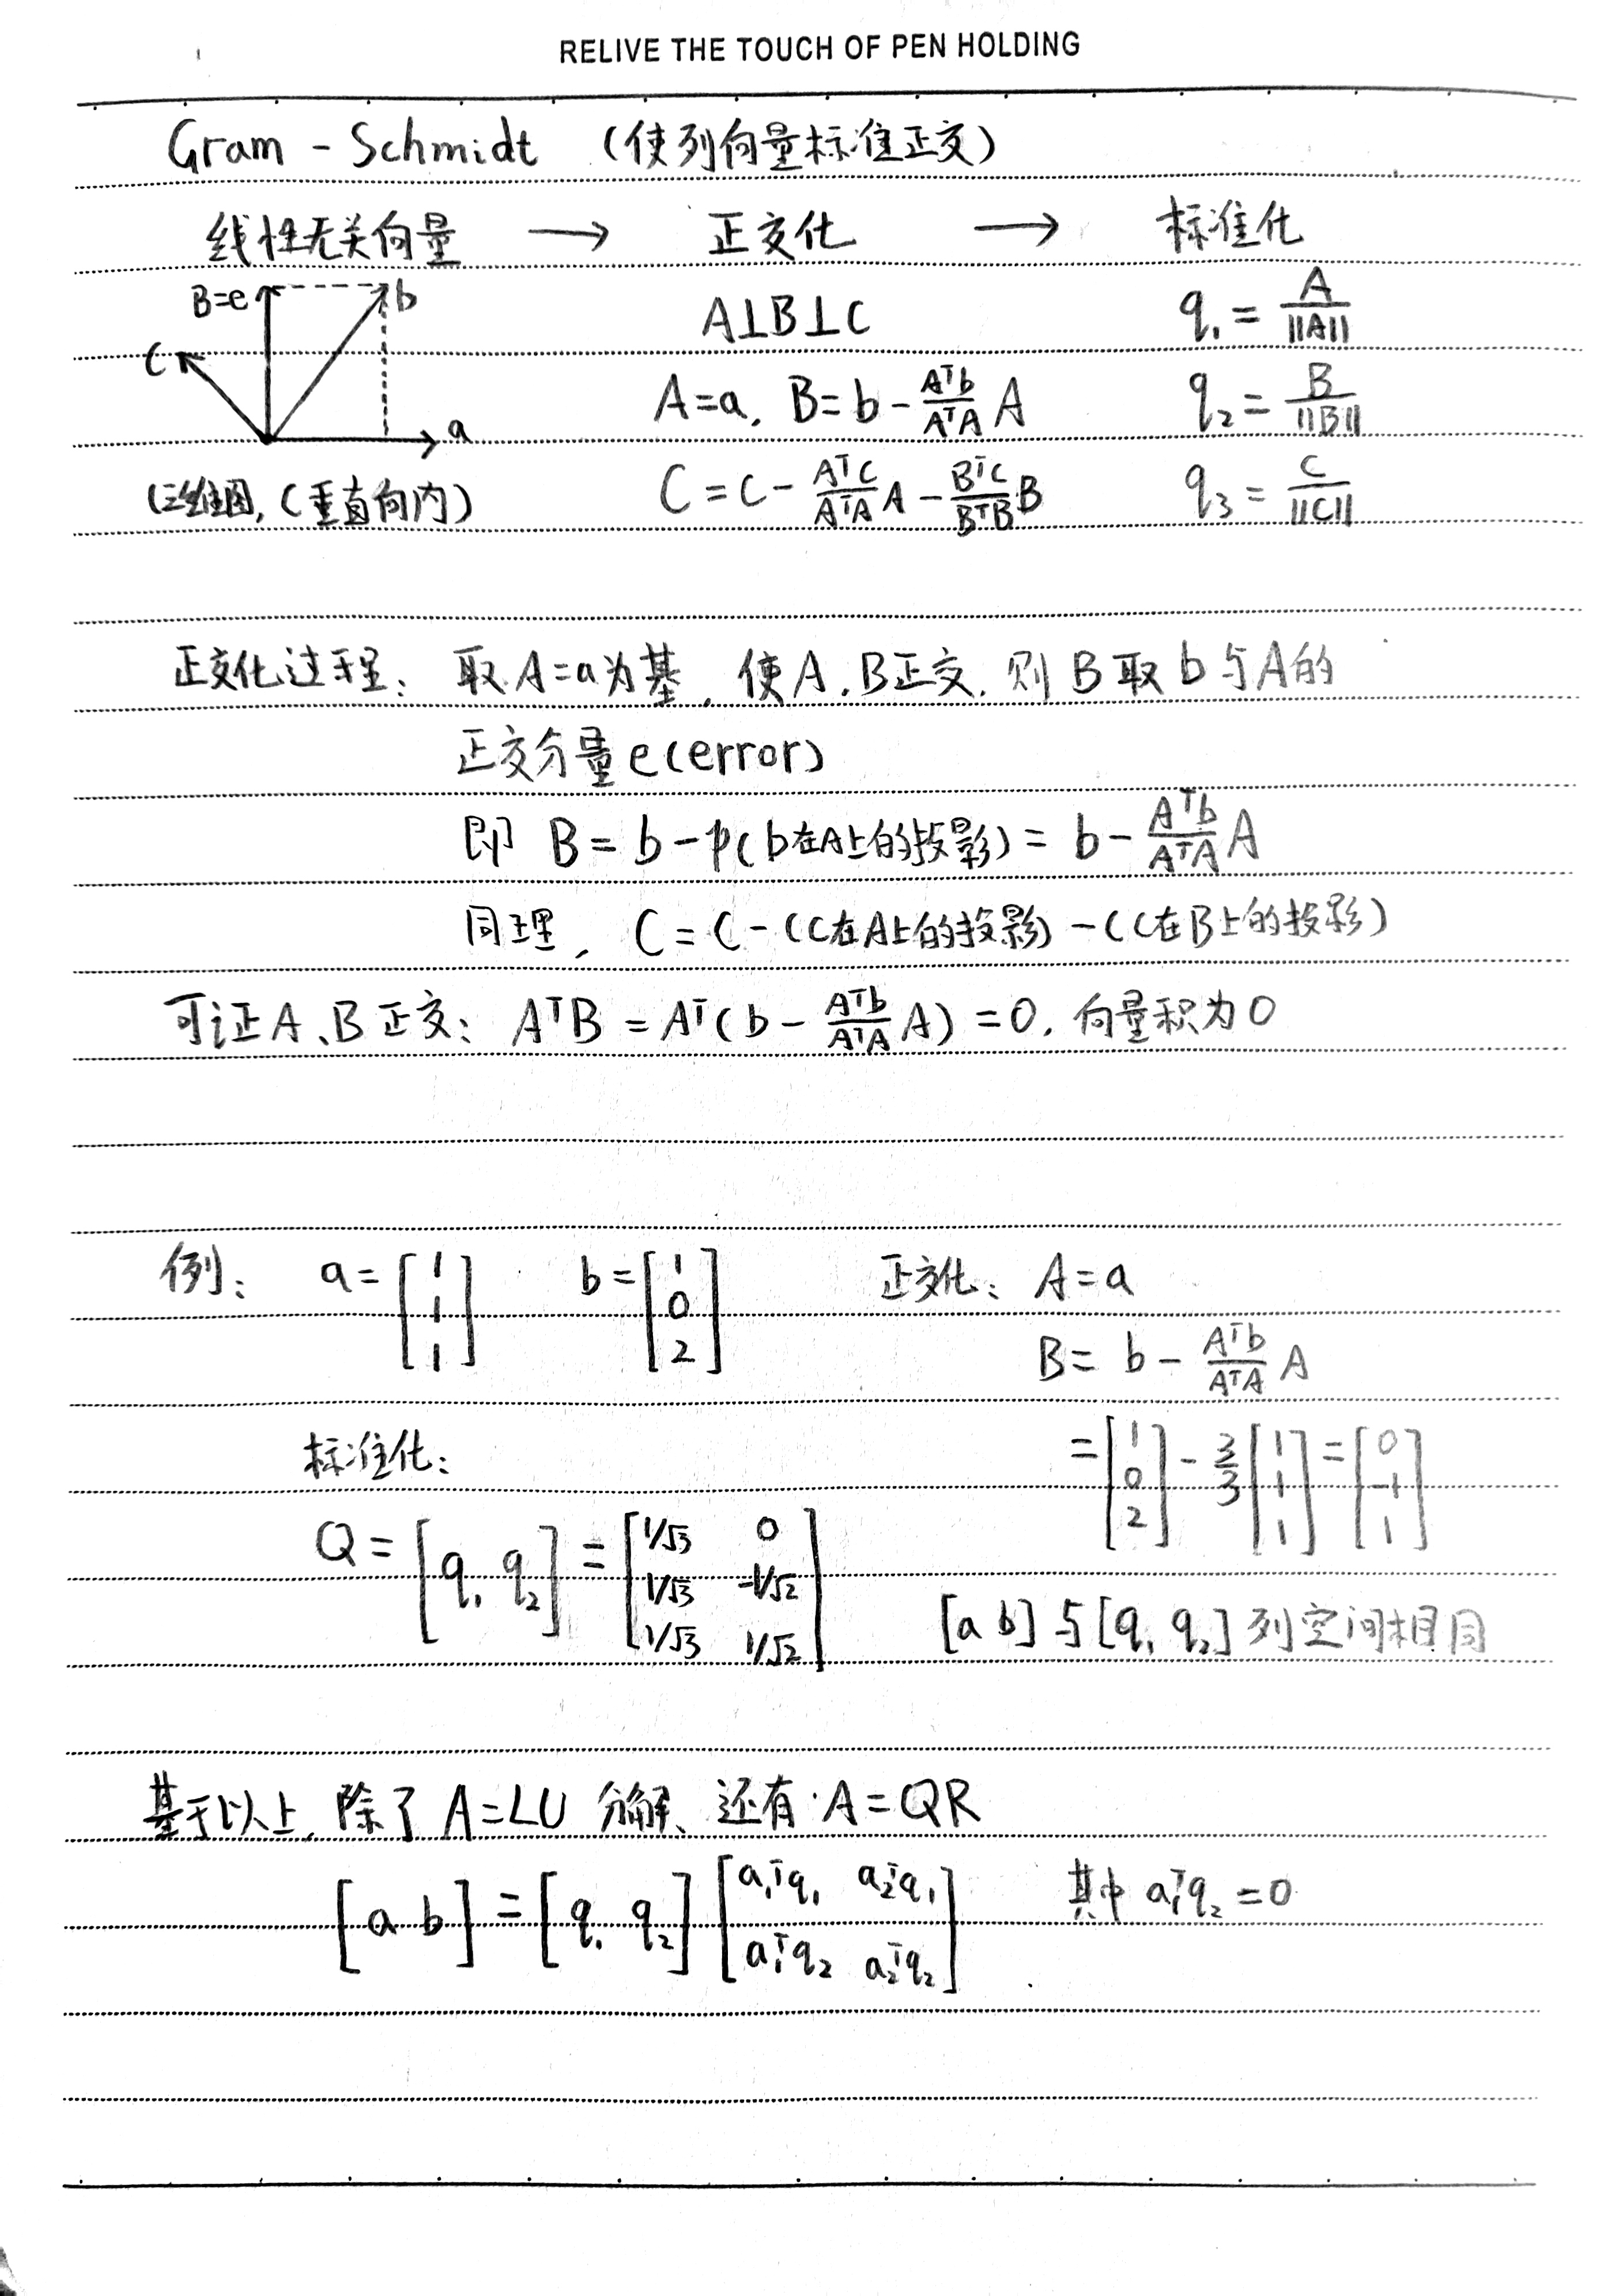 RELIVE THE TOUCH OF PEN HOLDING
Gram - Schmidt （使列向量标准正交）
线性无关向量 → 正交化 → 标准化
B=e b A⊥B⊥C q₁ = A/||A||
C a A=a, B=b-(Aᵀb/AᵀA)A q₂ = B/||B||
(三维图, C垂直向内) C=c-(Aᵀc/AᵀA)A-(Bᵀc/BᵀB)B q₃ = C/||C||
正交化过程: 取A=a为基, 使A、B正交, 则B取b与A的
正交分量e(error)
即 B = b-p(b在A上的投影) = b-(Aᵀb/AᵀA)A
同理, C = C-(C在A上的投影)-(C在B上的投影)
可证A、B正交: AᵀB = Aᵀ(b-(Aᵀb/AᵀA)A) = 0, 向量积为0
例: a=[1 1 1] b=[1 0 2] 正交化: A=a
B= b-(Aᵀb/AᵀA)A
=[1 0 2]-3/3[1 1 1]=[0 -1 1]
标准化:
Q=[q₁ q₂]=[1/√3 0; 1/√3 -1/√2; 1/√3 1/√2]
[a b]与[q₁ q₂]列空间相同
基于以上, 除了A=LU 分解、还有A=QR
[a b]=[q₁ q₂][a₁ᵀq₁ a₂ᵀq₁; a₁ᵀq₂ a₂ᵀq₂] 其中 a₁ᵀq₂=0